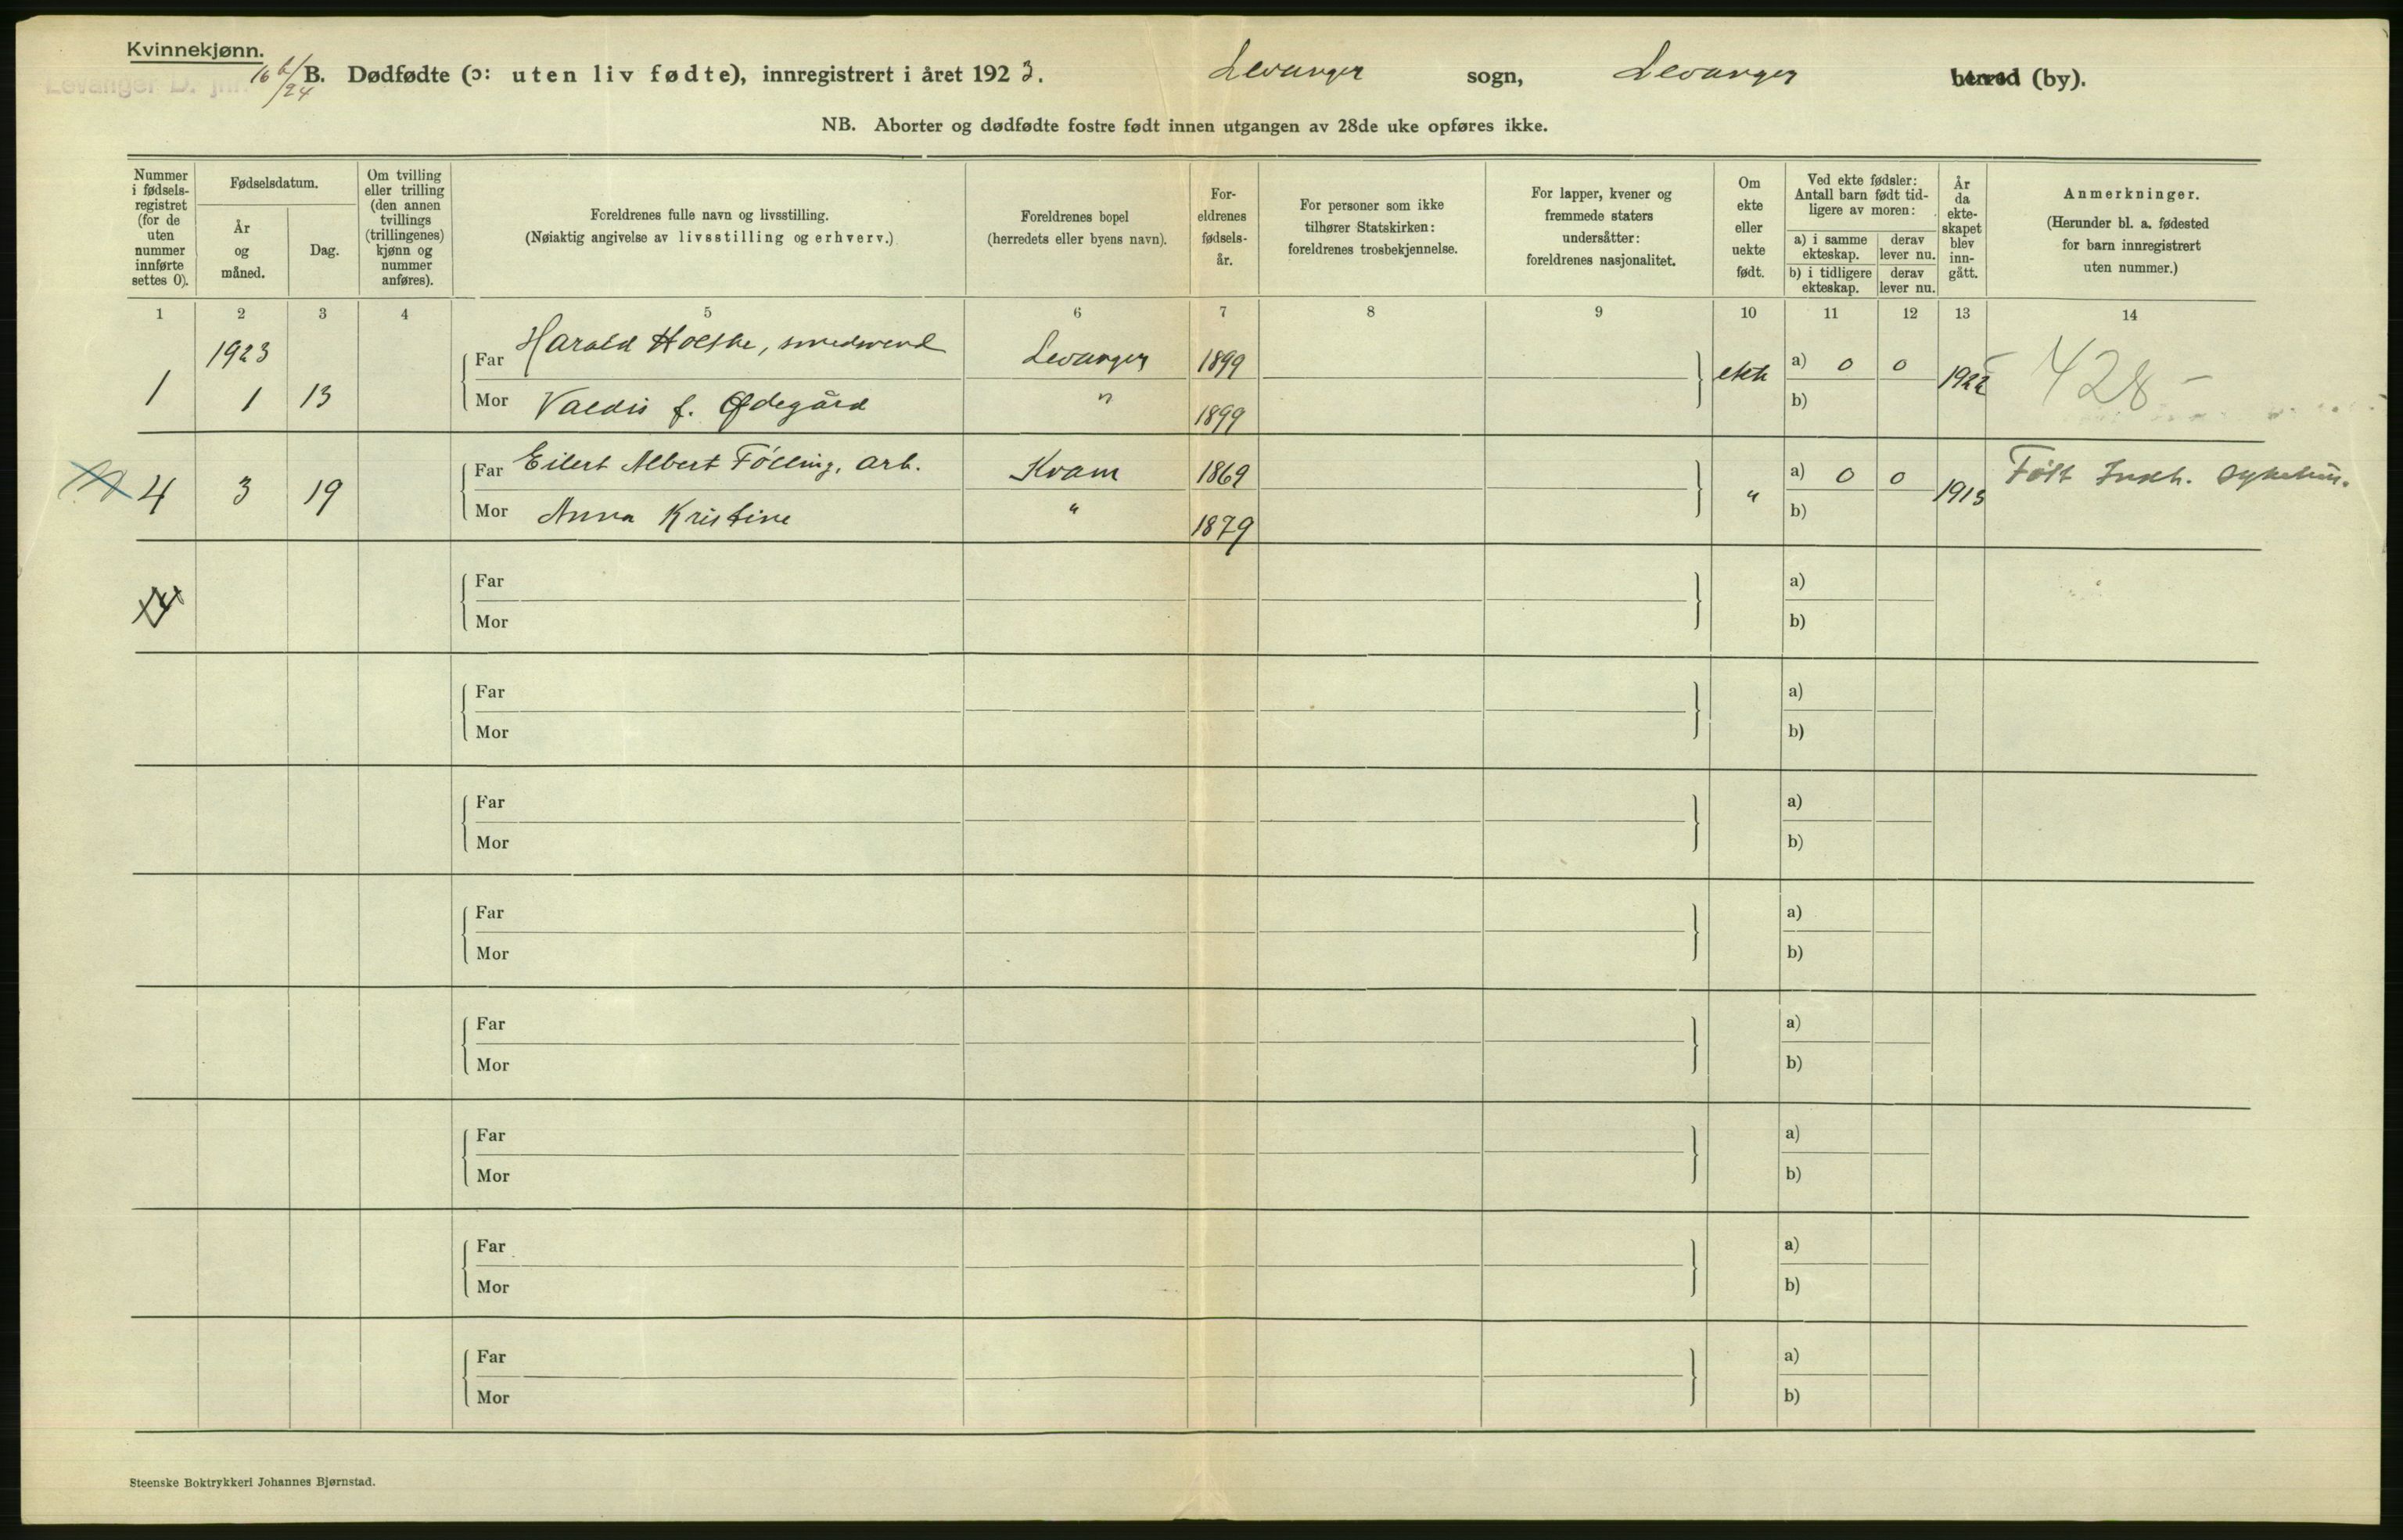 Kvinnekjønn.
Levanger D. jnr. 16 6/24
B. Dødfødte (ɔ: uten liv fødte), innregistrert i året 1923. Levanger sogn, Levanger herred (by).
NB. Aborter og dødfødte fostre født innen utgangen av 28de uke opføres ikke.
Nummer i fødsels-registret (for de uten nummer innførte settes 0).
Fødselsdatum.
År og måned.
Dag.
Om tvilling eller trilling (den annen tvillings (trillingenes) kjønn og nummer anføres).
Foreldrenes fulle navn og livsstilling.
(Nøiaktig angivelse av livsstilling og erhverv.)
Foreldrenes bopel
(herredets eller byens navn).
For-eldrenes fødsels-år.
For personer som ikke tilhører Statskirken: foreldrenes trosbekjennelse.
For lapper, kvener og fremmede staters undersåtter: foreldrenes nasjonalitet.
Om ekte eller uekte født.
Ved ekte fødsler: Antall barn født tid-ligere av moren:
a) i samme ekteskap.
derav lever nu.
b) i tidligere ekteskap.
derav lever nu.
År da ekte-skapet blev inn-gått.
Anmerkninger.
(Herunder bl. a. fødested for barn innregistrert uten nummer.)
1 2 3 4 5 6 7 8 9 10 11 12 13 14
1923
Far Harald Holthe, smedsvend Levanger 1899 a) 0 0
1 1 13 ekte 1922 428
Mor Valdis f. Ødegård " 1899 b)
Far Eilert Albert Følling, arb. Kvam 1869 a) 0 0 Født Innh. sykehus.
4 3 19 " 1913
Mor Anna Kristine " 1879 b)
Far a)
4
Mor b)
Far a)
Mor b)
Far a)
Mor b)
Far a)
Mor b)
Far a)
Mor b)
Far a)
Mor b)
Far a)
Mor b)
Far a)
Mor b)
Steenske Boktrykkeri Johannes Bjørnstad.